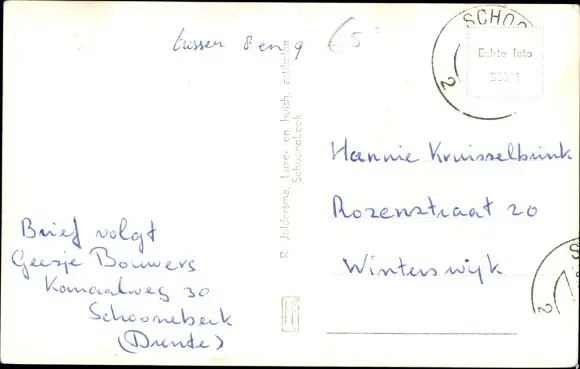 tussen 8 en 9
65
SCHOO
Echte foto
Brief volgt
Geesje Bouwers
Kanaalweg 30
Schoonebeek
(Drente)
R. Joldersma, Luxe- en huish. artikelen
Schoonebeek
Hannie Kruisselbrink
Rozenstraat 20
Winterswijk
2
2
S